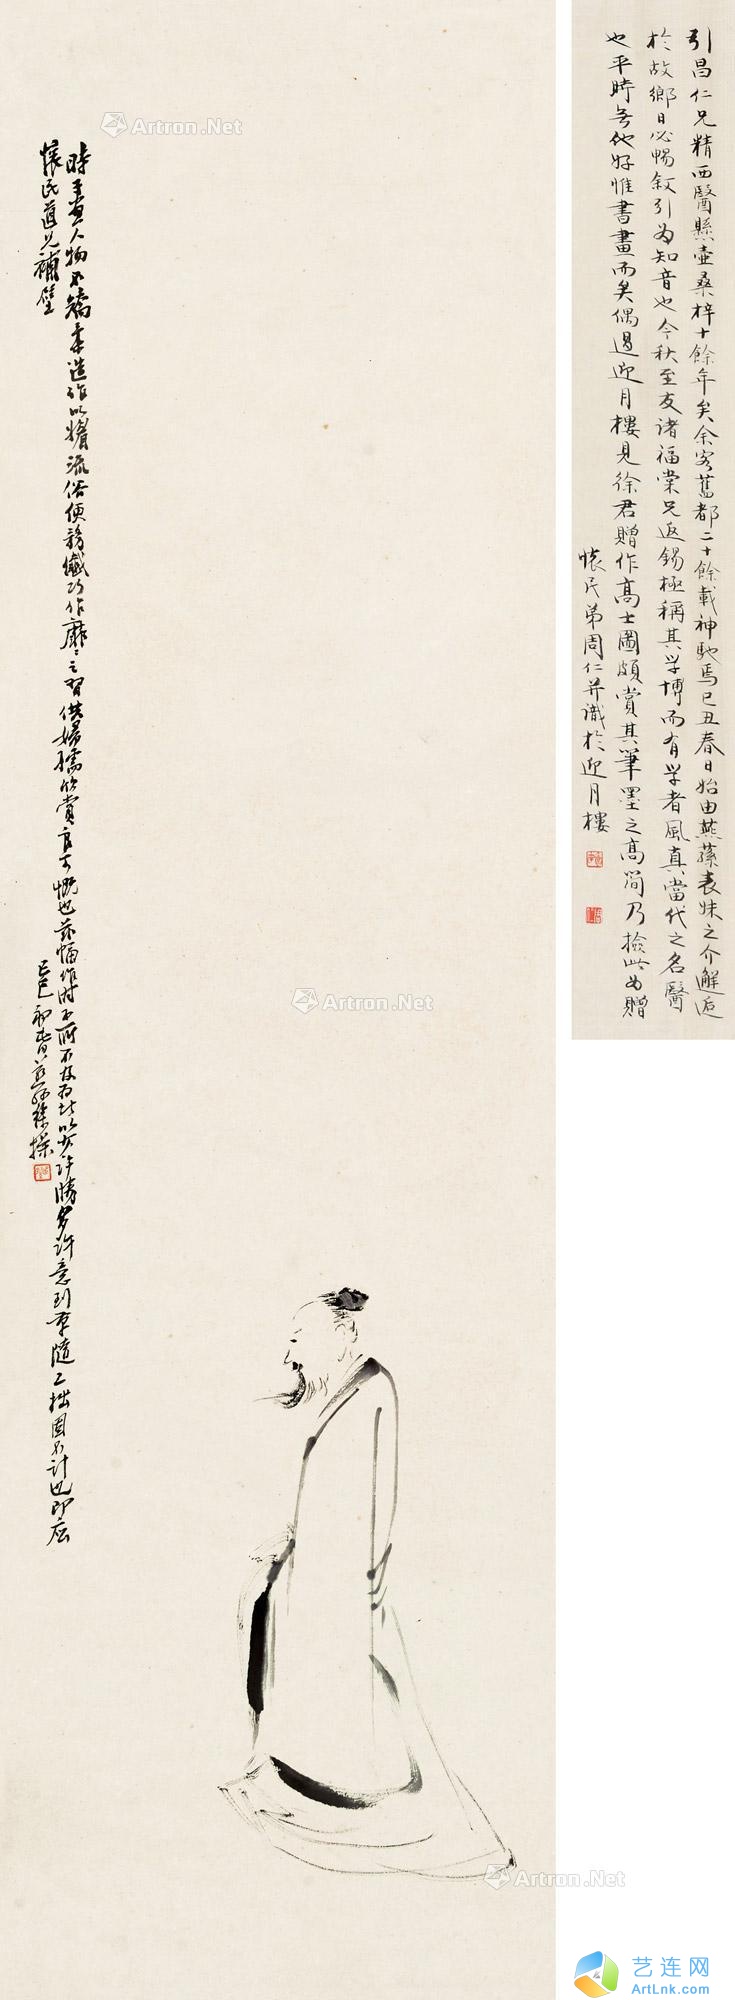 引昌仁兄精西醫懸壺桑梓十餘年矣余客舊都二十餘載神馳焉己丑春日始由燕蓀表妹之介邂逅
於故鄉日必暢敘引為知音也今秋至友诸福棠兄返錫極稱其学博而有学者風真當代之名醫
也平時無他好惟書畫而矣偶過迎月樓見徐君贈作高士圖頗賞其筆墨之高简乃撿此以贈
懷民弟周仁并識於迎月樓
時手畫人物不矯柔造作以媚流俗便務纖巧作靡靡之習供婦孺欣賞良可慨也茲幅作时不以少许勝多许意到筆隨工拙固不计也即应
懷民道兄補壁
己巳初春燕孫徐操
Artron.Net
Artron.Net
Artron.Net
艺连网
ArtLnk.com